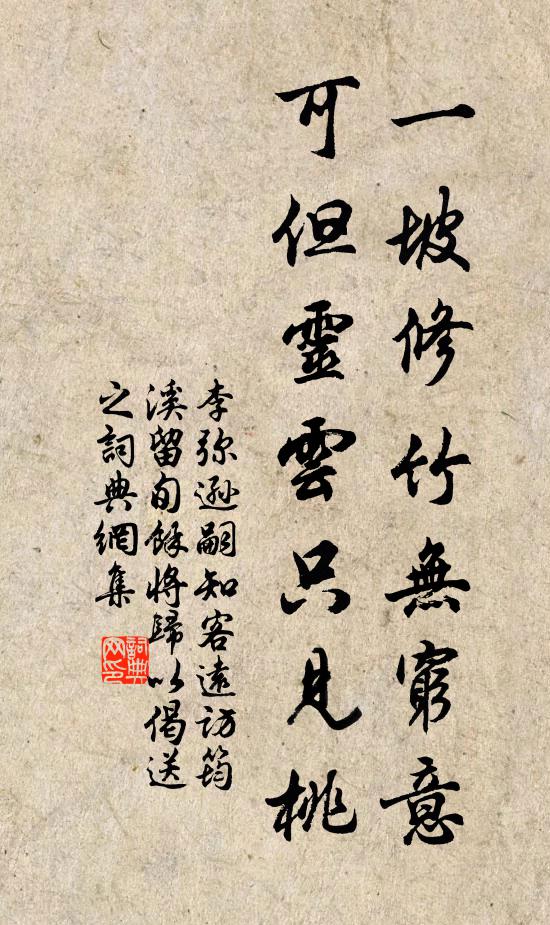 一坡修竹無窮意
可但靈雲只見桃
李弥遜嗣知客遠访筠
溪留旬餘将歸以偈送
之詞典網集
詞典网印